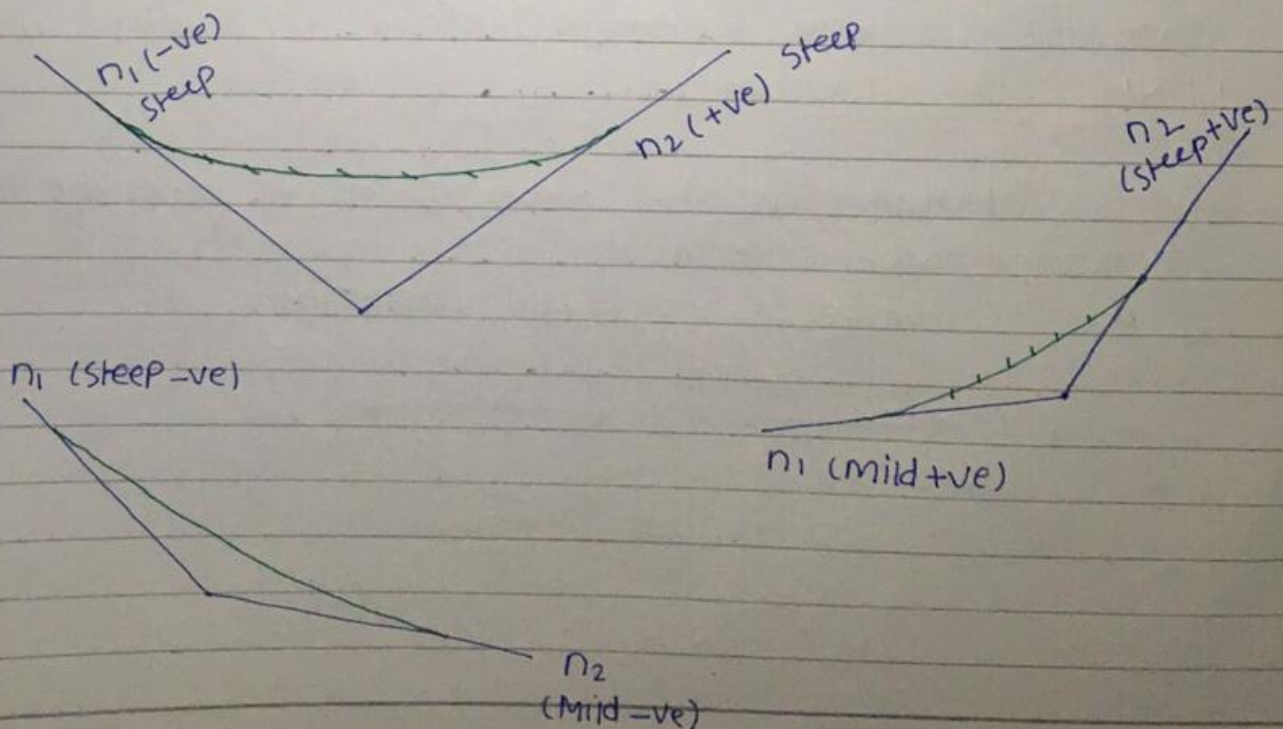 n₁ (-ve)
steep
steep
n₂ (+ve)
n₂
(steep+ve)
n₁ (steep -ve)
n₁ (Mild +ve)
n₂
(Mild -ve)